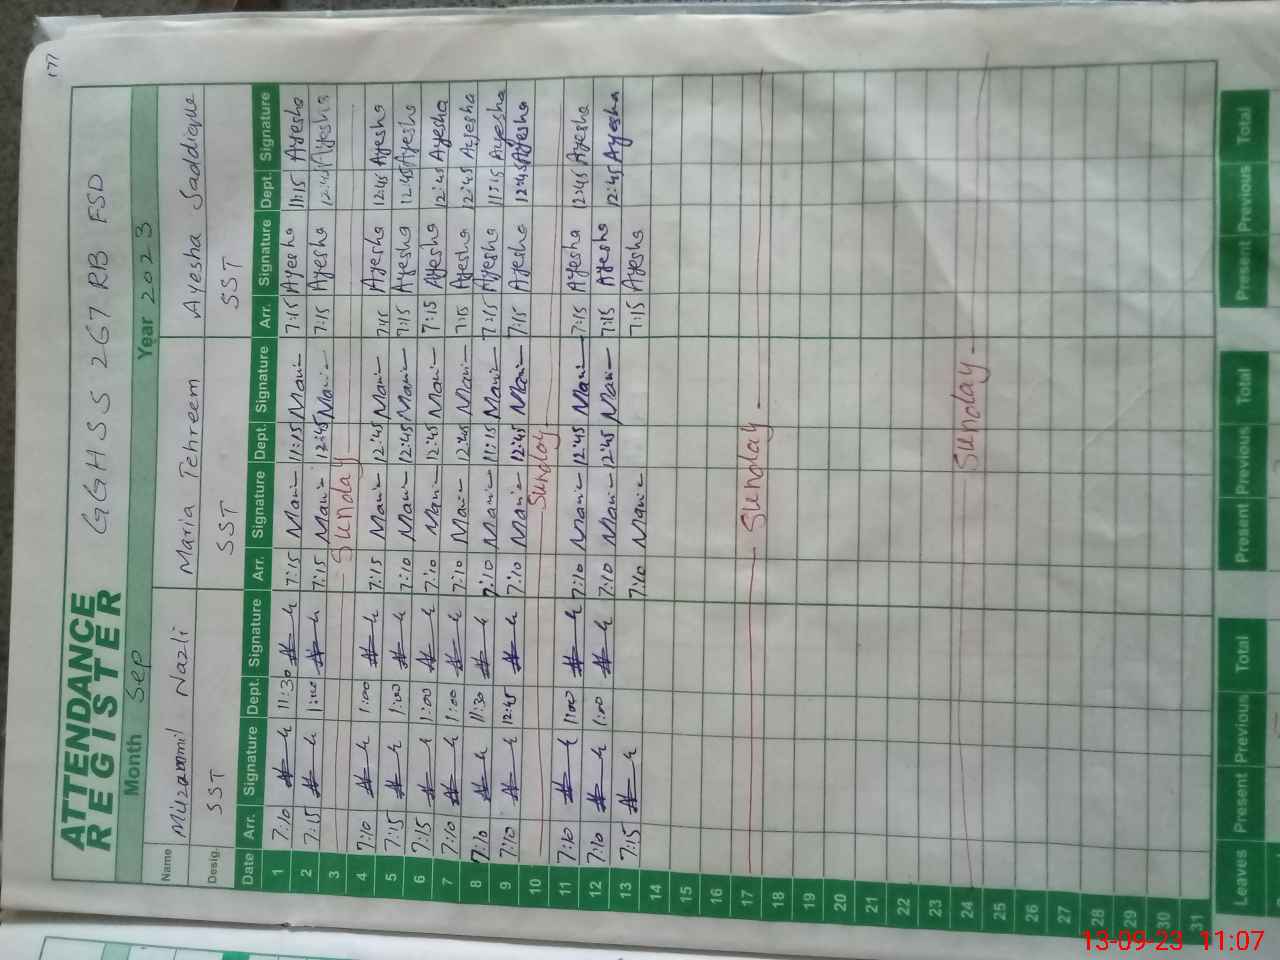 177
ATTENDANCE REGISTER GGHSS 267 RB FSD
Month Sep Year 2023
Name Muzammil Nazli Maria Tehreem Ayesha Saddique
Desig. SST SST SST
Date Arr. Signature Dept. Signature Arr. Signature Dept. Signature Arr. Signature Dept. Signature
1 7:10 11:30 7:15 Maria 11:15 Maria 7:15 Ayesha 11:15 Ayesha
2 7:15 1:00 7:15 Maria 12:45 Maria 7:15 Ayesha 12:45 Ayesha
3 Sunday
4 7:10 1:00 7:15 Maria 12:45 Maria 7:15 Ayesha 12:45 Ayesha
5 7:15 1:00 7:10 Maria 12:45 Maria 7:15 Ayesha 12:45 Ayesha
6 7:15 1:00 7:10 Maria 12:45 Maria 7:15 Ayesha 12:45 Ayesha
7 7:10 1:00 7:10 Maria 12:45 Maria 7:15 Ayesha 12:45 Ayesha
8 7:10 11:30 7:10 Maria 11:15 Maria 7:15 Ayesha 11:15 Ayesha
9 7:10 12:45 7:10 Maria 12:45 Maria 7:15 Ayesha 12:45 Ayesha
10 Sunday
11 7:10 1:00 7:10 Maria 12:45 Maria 7:15 Ayesha 12:45 Ayesha
12 7:10 1:00 7:10 Maria 12:45 Maria 7:15 Ayesha 12:45 Ayesha
13 7:15 7:10 Maria 7:15 Ayesha
14
15
16
17 Sunday
18
19
20
21
22
23
24 Sunday
25
26
27
28
29
30
31
Leaves Present Previous Total Present Previous Total Present Previous Total
13-09-23 11:07